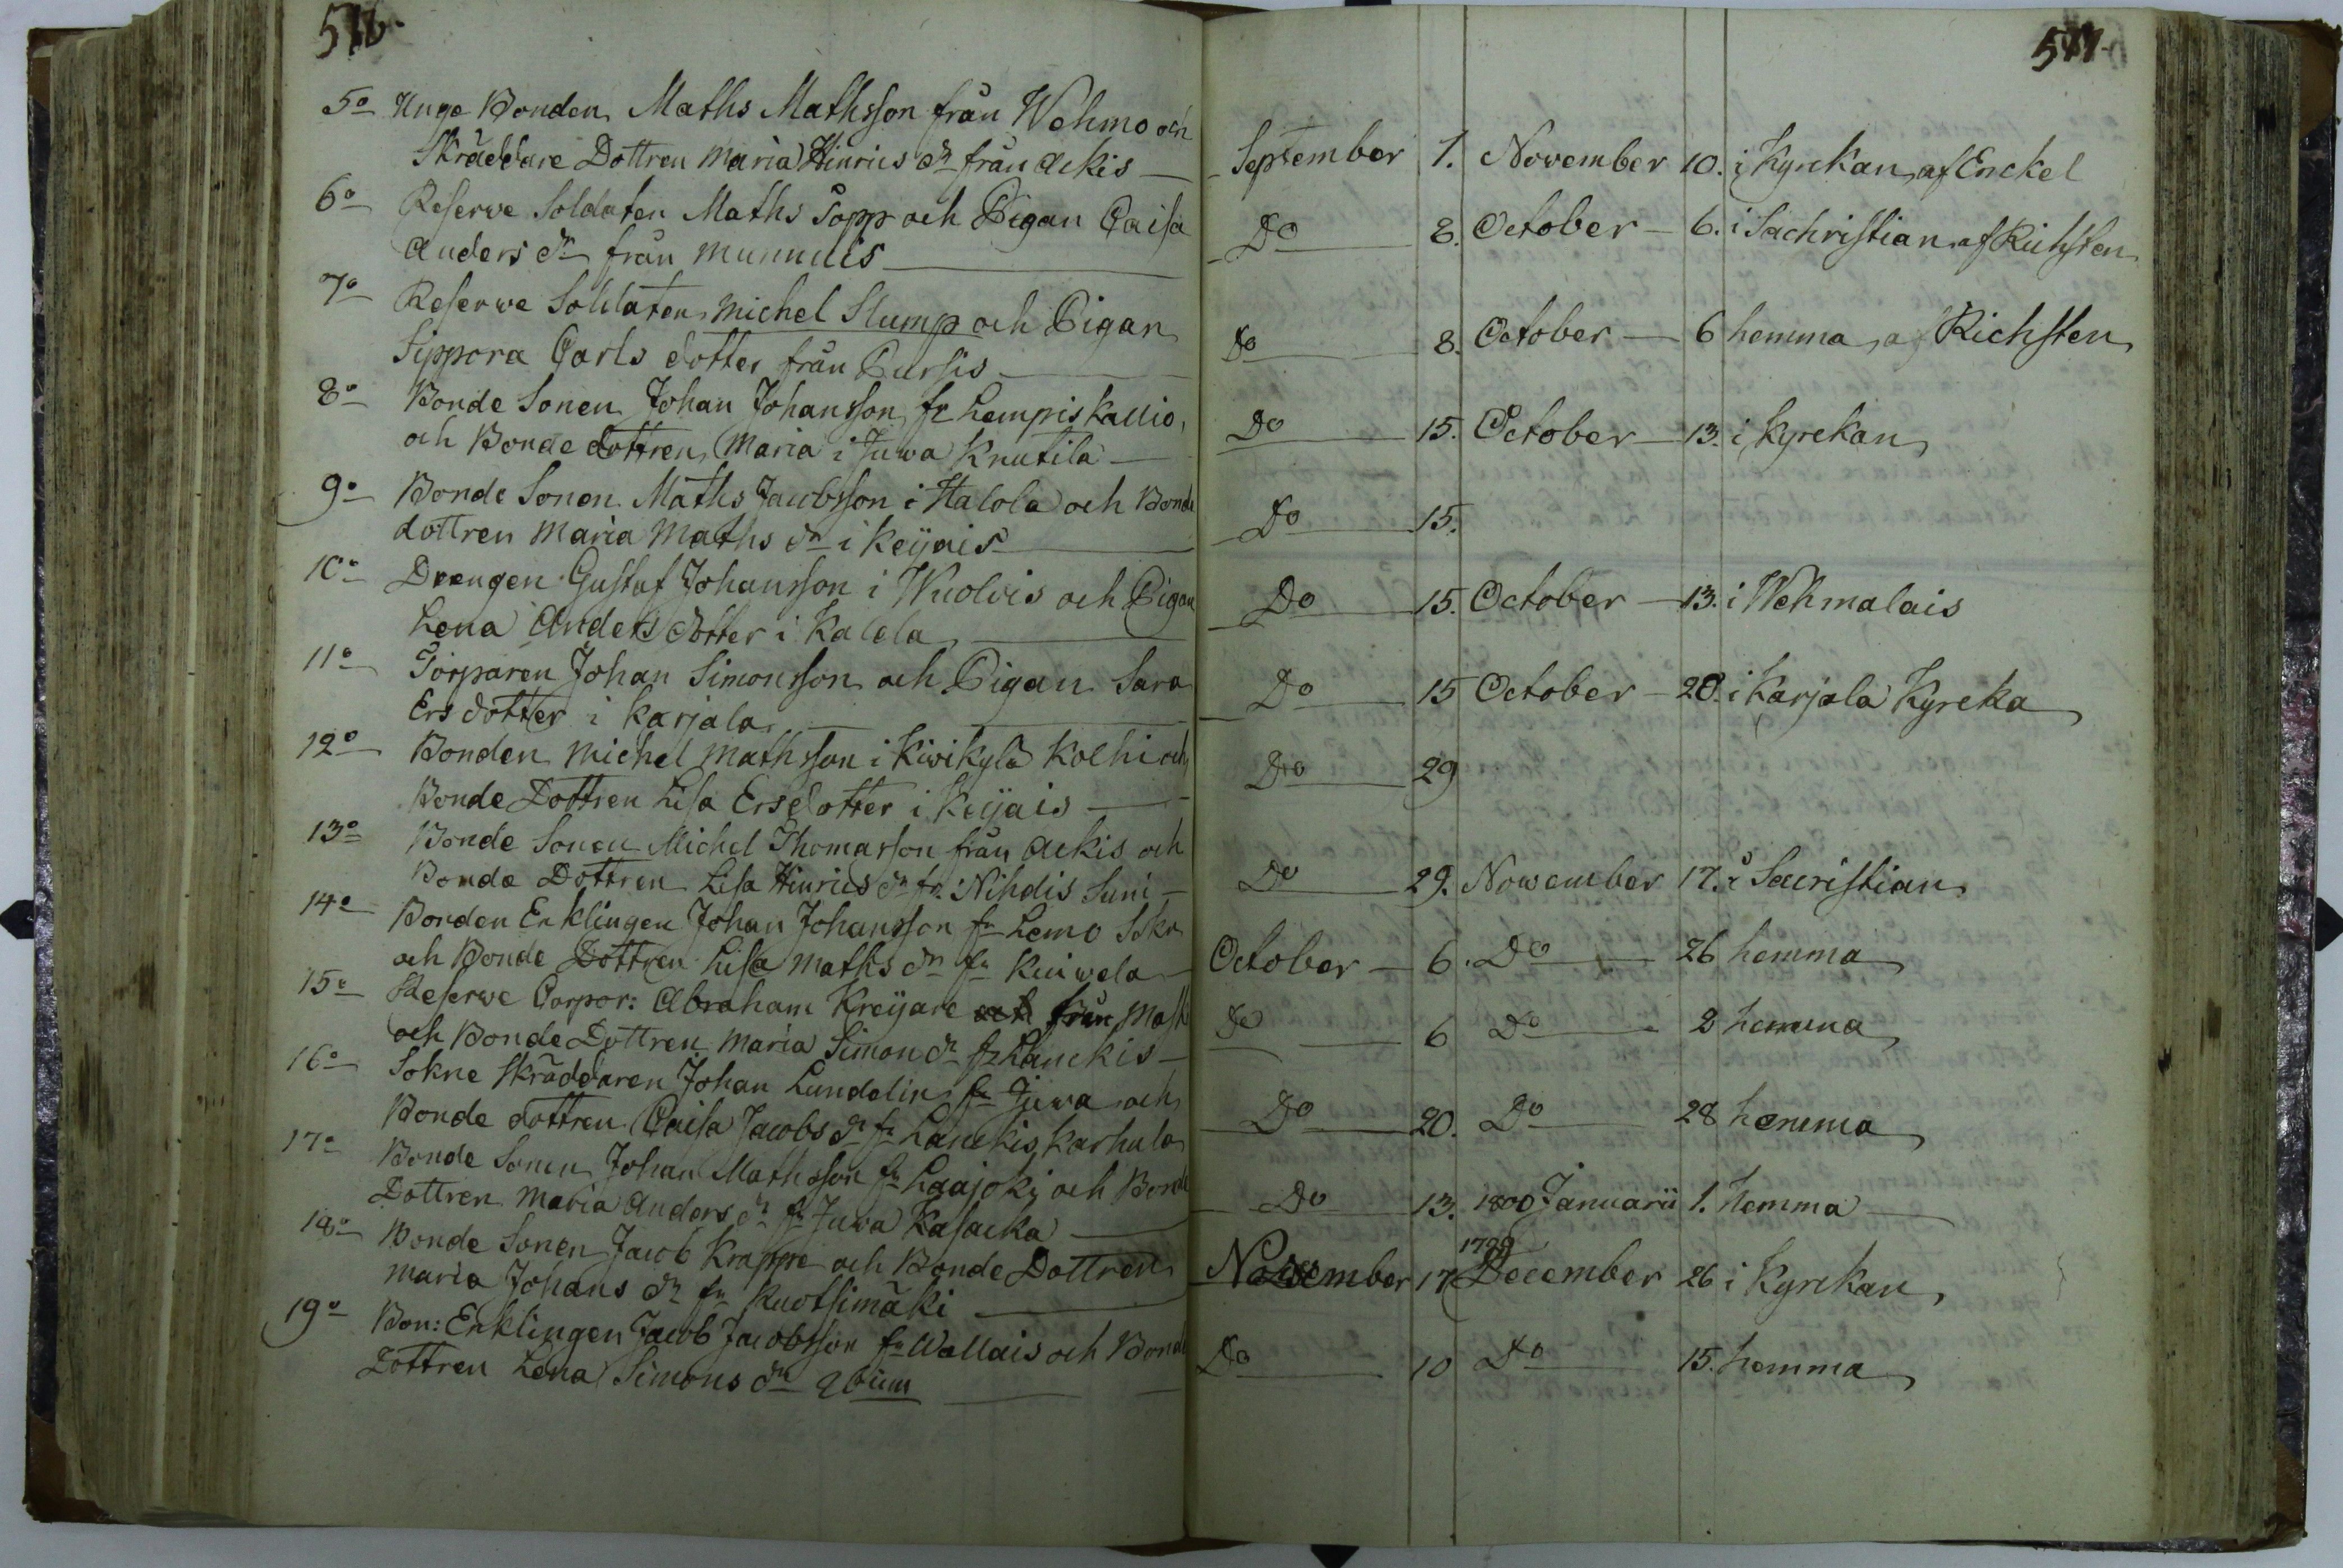 576.
5o Unge Bonden Maths Mathsson från Wehmo och
Skräddare Dottren Maria Hinrics dr från Ackis
6o Reserve Soldaten Maths Sopp och Pigan Caisa
Anders dr från Munnuis
7o Reserve Soldaten Michel Slump och Pigan
Sippora Carls dotter från Pursis
8o Bonde Sonen Johan Johansson fr Lempis Kallio,
och Bonde dottren Maria i Juva Knutila
9o Bonde Sonen Maths Jacobsson i Halola och Bonde
dottren Maria Maths dr i Keijais
10o Drengen Gustaf Johansson i Wuolvis och Pigan
Lena Anders dotter i Kalela
11o Torparen Johan Simonsson och Pigan Sara
Ers dotter i Karjala
12o Bonden Michel Mathsson i Kivikylä Kolhi och
Bonde Dottren Lisa Ersdotter i Keijais
13o Bonde Sonen Michel Thomasson från Ackis och
Bonde Dottren Lisa Hinrics dr fr: Nihdis Suni
14o Bonden Enklingen Johan Johansson fr Lemo Sokn
och Bonde Dottren Lisa Maths dr fr Kuiwela
15o Reserve Corpor: Abraham Kreijare från
och Bonde Dottren Maria Simon dr fr Lauckis
16o Sokne Skräddaren Johan Lundelin fr Juva och
Bonde dottren Caisa Jacobs dr fr Lauckis, Karhula
17o Bonde Sonen Johan Mathsson fr Laajoki och Bonde
Dottren Maria Anders dr fr Juva Kasacka
18o Bonde Sonen Jacob Krappe och Bonde Dottren
Maria Johans dr fr Kuotsimäki
19o Bon: Enklingen Jacob Jacobsson fr Wallais och Bonde
Dottren Lena Simons dr
577.
September 1. November 10. i Kyrckan af Enckel
Do 8. October 6. i Sachristian af Richsten
Do 8. October 6 hemma af Richsten
Do 15. October 13. i Kyrckan
Do 15.
Do 15. October 13. i Wehmalais
Do 15 October 20. i Karjala Kyrcka
Do 29
Do 29. November 17. i Sacristian
October 6. Do 26 hemma
Do 6 Do 2 hemma
Do 20. Do 28 hemma
Do 13. 1800 Januarii 1. hemma
1799
November 17 December 26 i Kyrckan
Do 10 Do 15. hemma